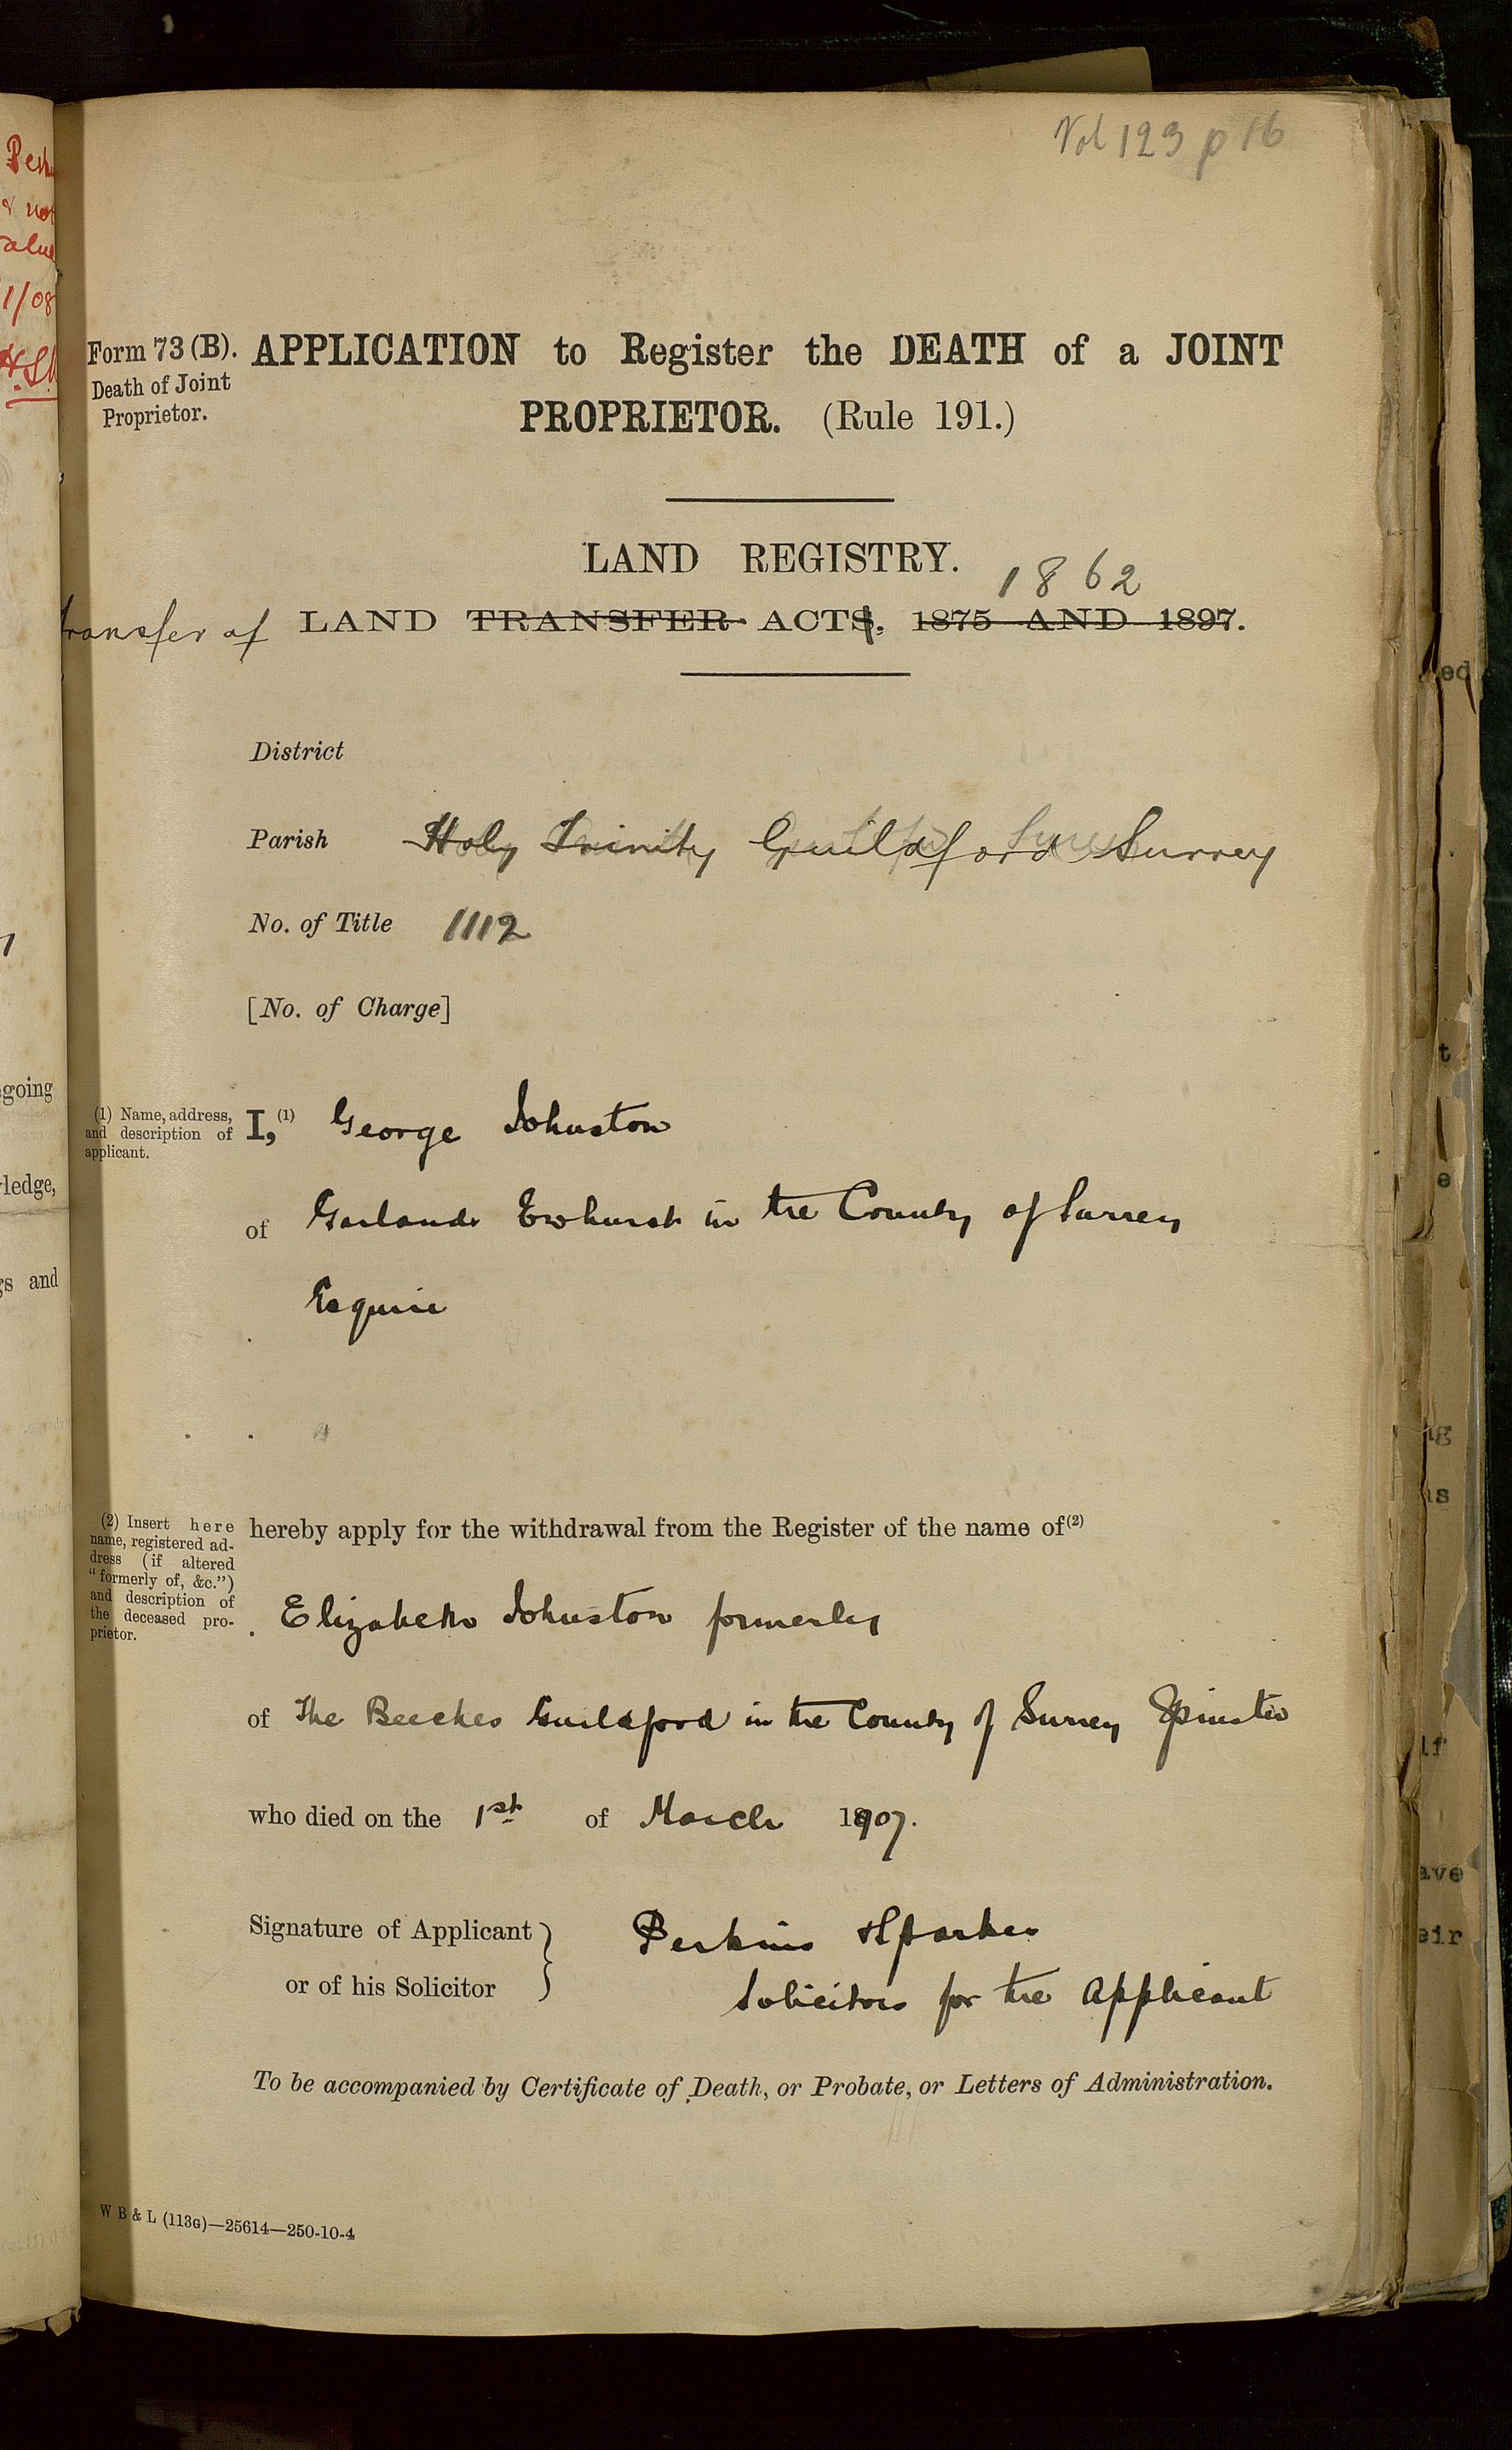 Vol 123 p 16
Form 73 (B). APPLICATION to Register the DEATH of a JOINT
Death of Joint
Proprietor. PROPRIETOR. (Rule 191.)
LAND REGISTRY.
1862
transfer of LAND TRANSFER ACTS, 1875 AND 1897.
District
Parish Holy Trinity Guildford Surrey
No. of Title 1112
[No. of Charge]
(1) Name, address,
and description of
applicant.
I,(1) George Johnston
of Garlands Ewhurst in the County of Surrey
Esquire
(2) Insert here
name, registered ad-
dress (if altered
"formerly of, &c.")
and description of
the deceased pro-
prietor.
hereby apply for the withdrawal from the Register of the name of(2)
Elizabeth Johnston formerly
of The Beeches Guildford in the County of Surrey Spinster
who died on the 1st of March 1907.
Signature of Applicant } Perkins & Sparkes
or of his Solicitor Solicitors for the Applicant
To be accompanied by Certificate of Death, or Probate, or Letters of Administration.
W B & L (113G)—25614—250-10-4
going
ledge,
gs and
1/08
ed
t
e
ave
eir